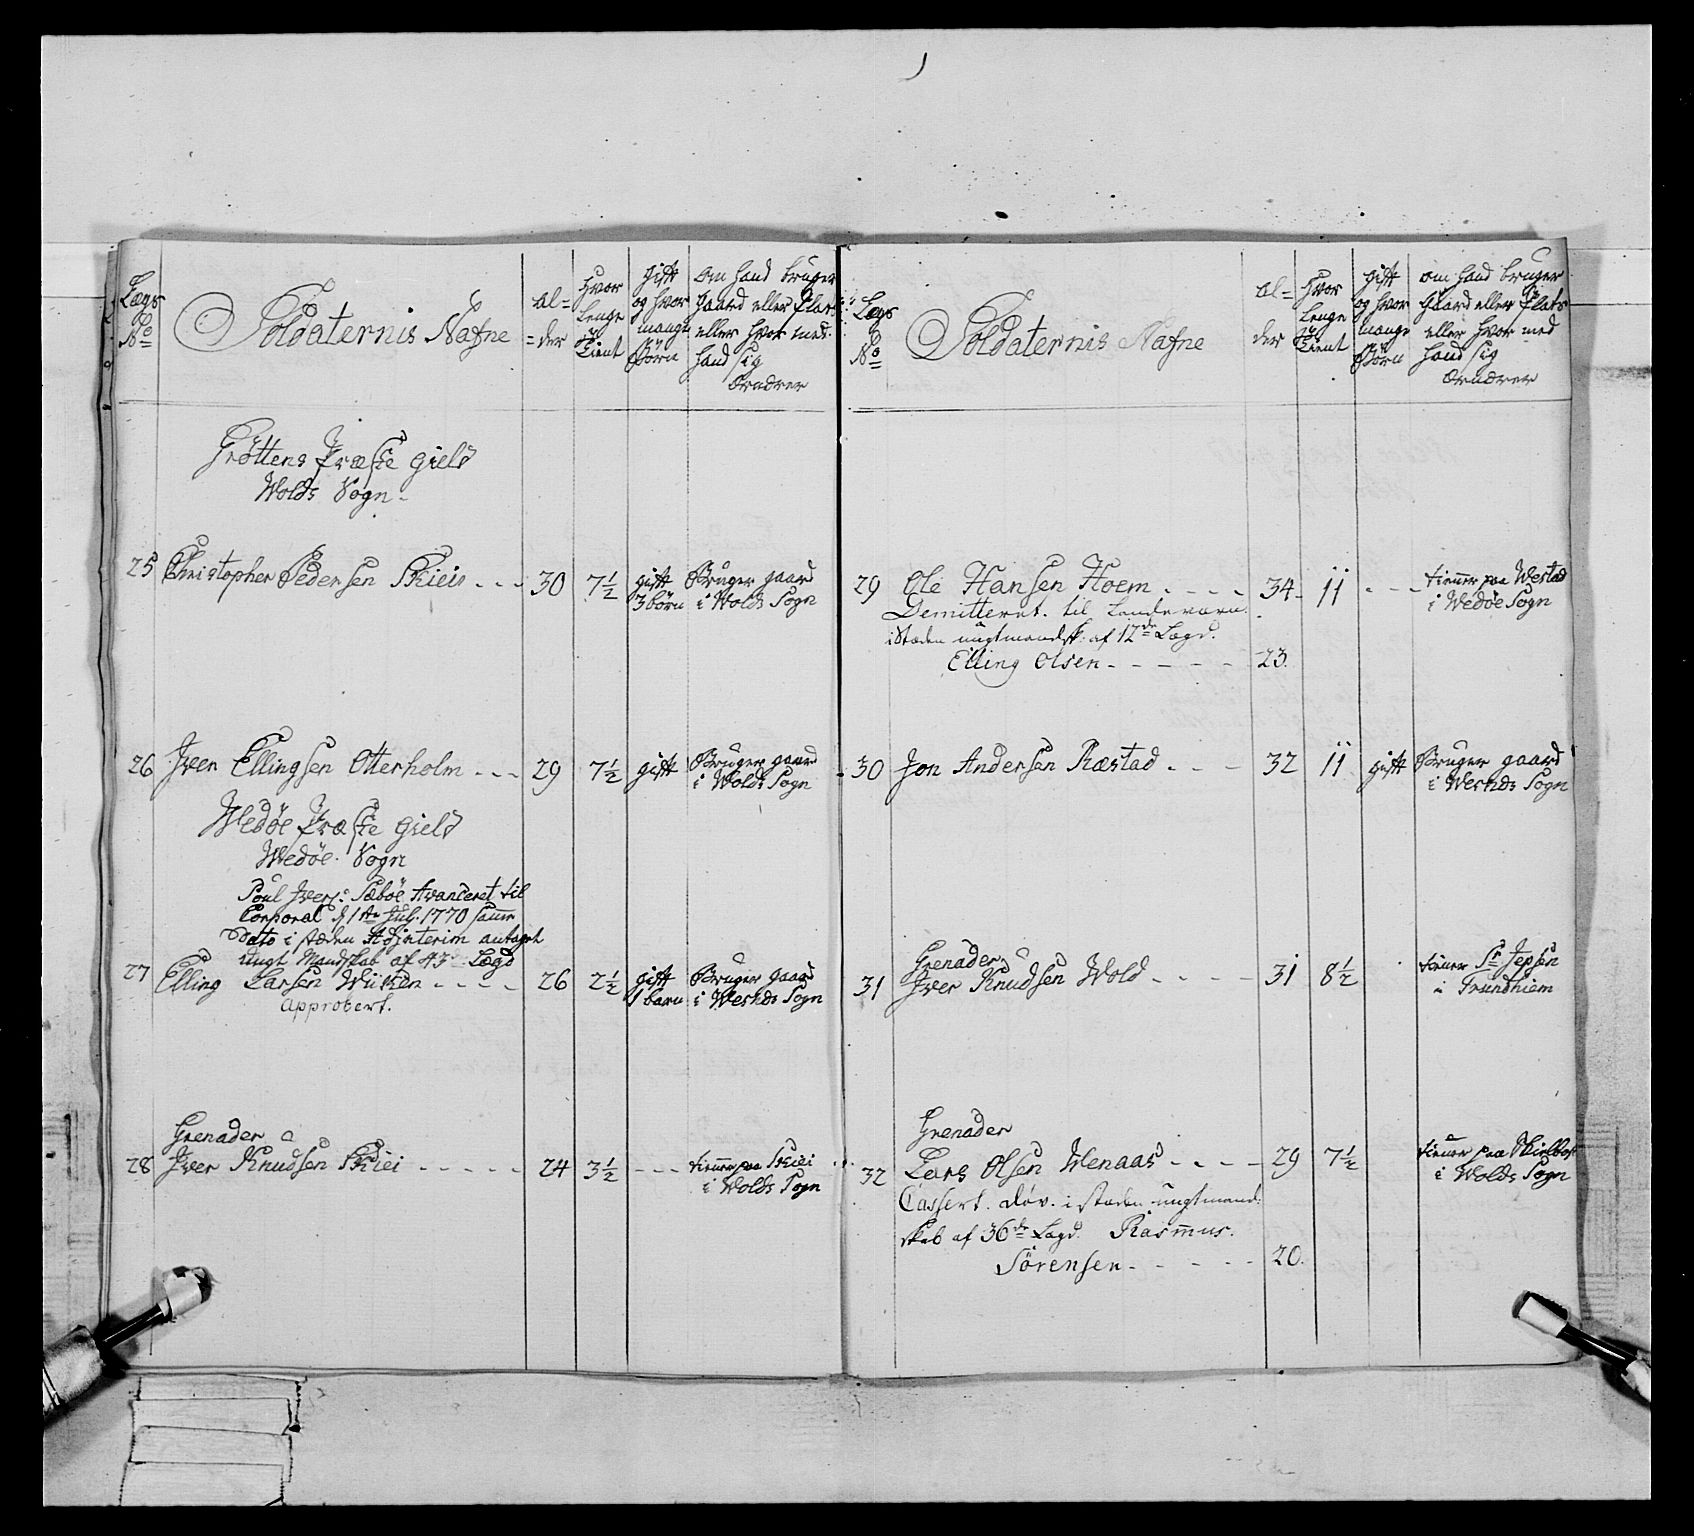 Lægs
No
Soldaternis Nafne
al=
=der
Hvor
lenge
Tient
gift
og hvor
mange
Börn
om hand bruger
gaard eller Plats
eller hvor med
hand sig
Ernærer
Gröttens Præste gield
Wolds Sogn
25 Christopher Pedersen Skieis - - - 30 7 1/2 gift Bruger gaard
3 börn i Wolds Sogn
26 Iver Ellingsen Otterholm - - - 29 7 1/2 gift Bruger gaard
i Wolds Sogn
Wedöe Præste gield
Wedöe Sogn
Poul Ivers: Sæböe Avanceret til
Corporal d 1te Julj. 1770 samme
Dato i stæden Ad interim antaget
ungt Mandskab af 43 Lægd
27 Elling Larsen - - - - 26 2 1/2 gift Bruger gaard
1 barn i Wesnds Sogn
approbert.
Grenader
28 Iver Knudsen Skiei - - - - - 24 3 1/2 - - - tiener paa Skiei
i Wolds Sogn
Lægs
No
Soldaternis Nafne
al=
der
Hvor
lenge
Tient
gift
og hvor
mange
Börn
om hand bruger
gaard eller Plats
eller hvor med
hand sig
Ernærer
29 Ole Hansen Hoem - - - - 34 11 - - - tiener paa Westad
i Wedöe Sogn
Demitteret til Landeværn
i stæden ungtmandsk: af 12de Lægd.
Elling Olsen - - - - - 23.
30 Jon Andersen Ræstad - - - 32 11 gift Bruger gaard
i Wesnds Sogn
Grenader
31 Iver Knudsen Wold - - - - 31 8 1/2 tiener Sr Jepsen
i Trundhiem
Grenader
32 Lars Olsen Wenaas - - - - 29 7 1/2 tiener paa
i Wolds Sogn
Cassert. döv. i stæden ungtmand:
skab af 36de Lægd. Rasmus.
Sörensen - - - - - 20.